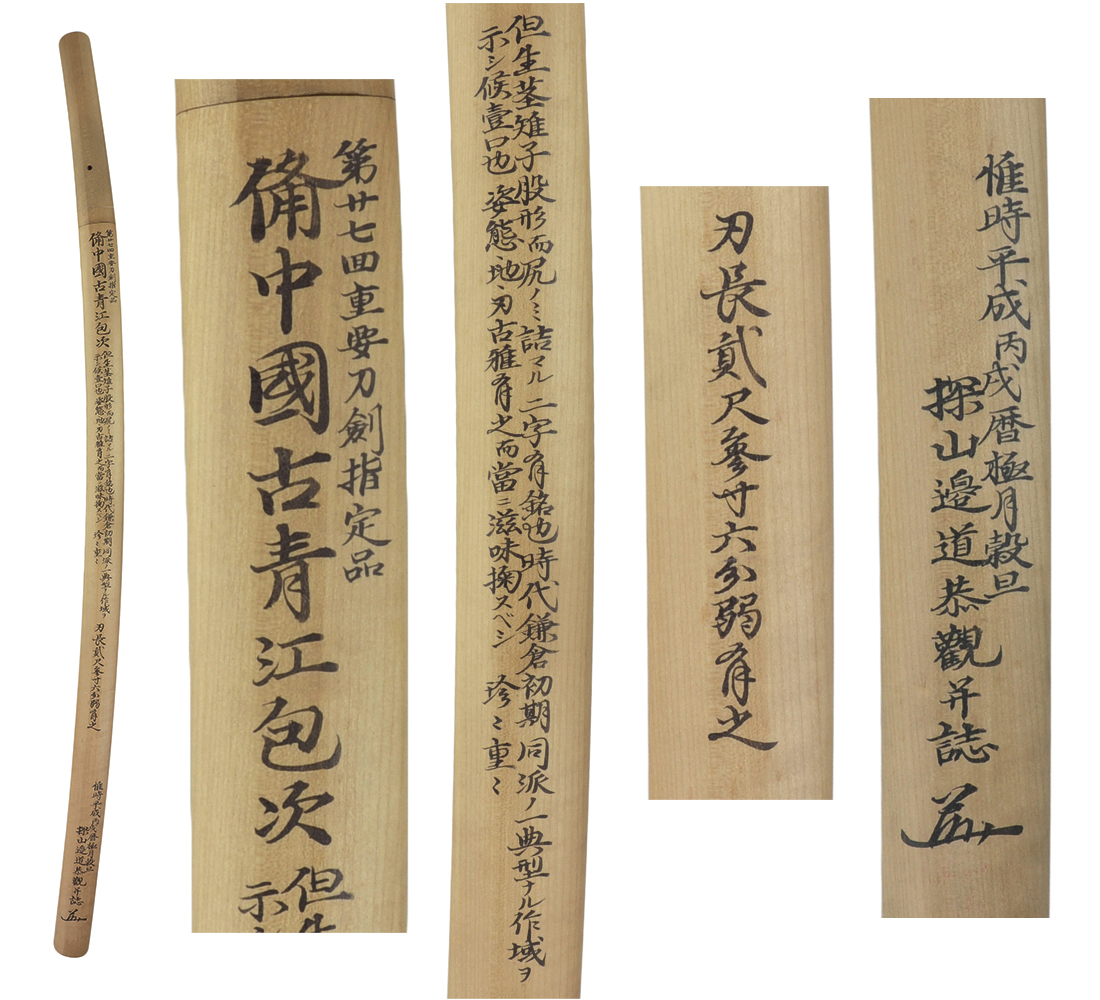 第廿七回重要刀劍指定品
備中國古青江包次
但生茎雉子股形而尻ノミ詰マル二字有銘也時代鎌倉初期同派ノ一典型ナル作域ヲ
示シ候壹口也姿態、地、刃古雅有之而當ニ滋味掬スベシ 珍〻重〻
刃長貳尺參寸六分弱有之
惟時平成丙戌暦極月穀旦
探山邉道恭觀并誌